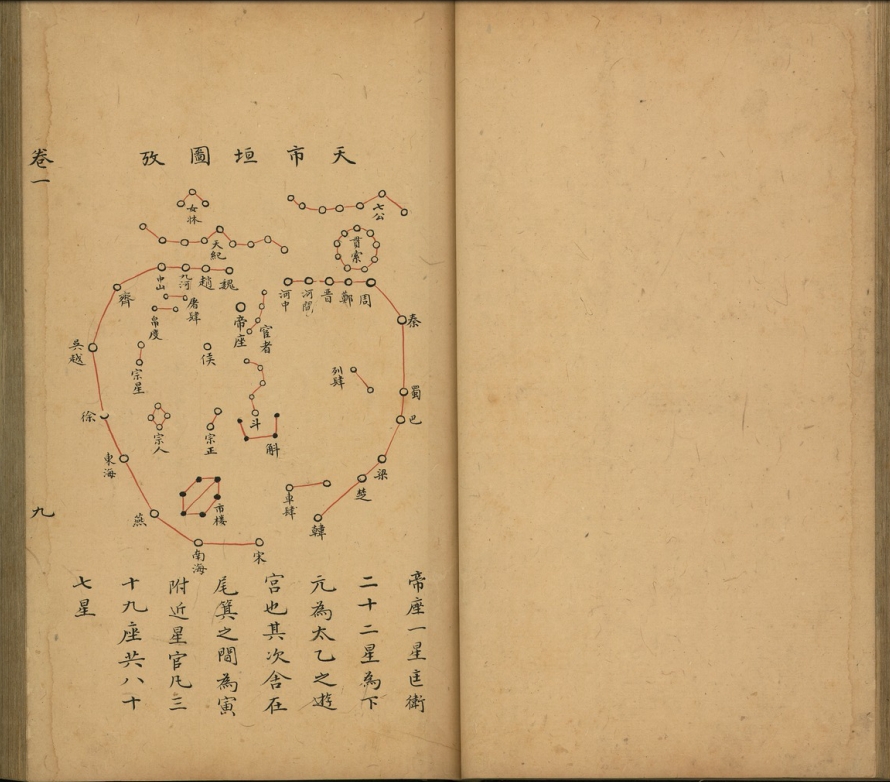 天市垣圖攷
卷一
九
七公
女牀
貫索
天紀
魏
趙
九河
中山
齊
吳越
徐
東海
燕
南海
宋
周
鄭
晋
河間
河中
秦
蜀
巴
梁
楚
韓
屠肆
帛度
帝座
宦者
侯
宗星
列肆
宗人
宗正
斗
斛
市楼
車肆
帝座一星匡衛
二十二星為下
元為太乙之遊
宮也其次舍在
尾箕之間為寅
附近星官凡三
十九座共八十
七星